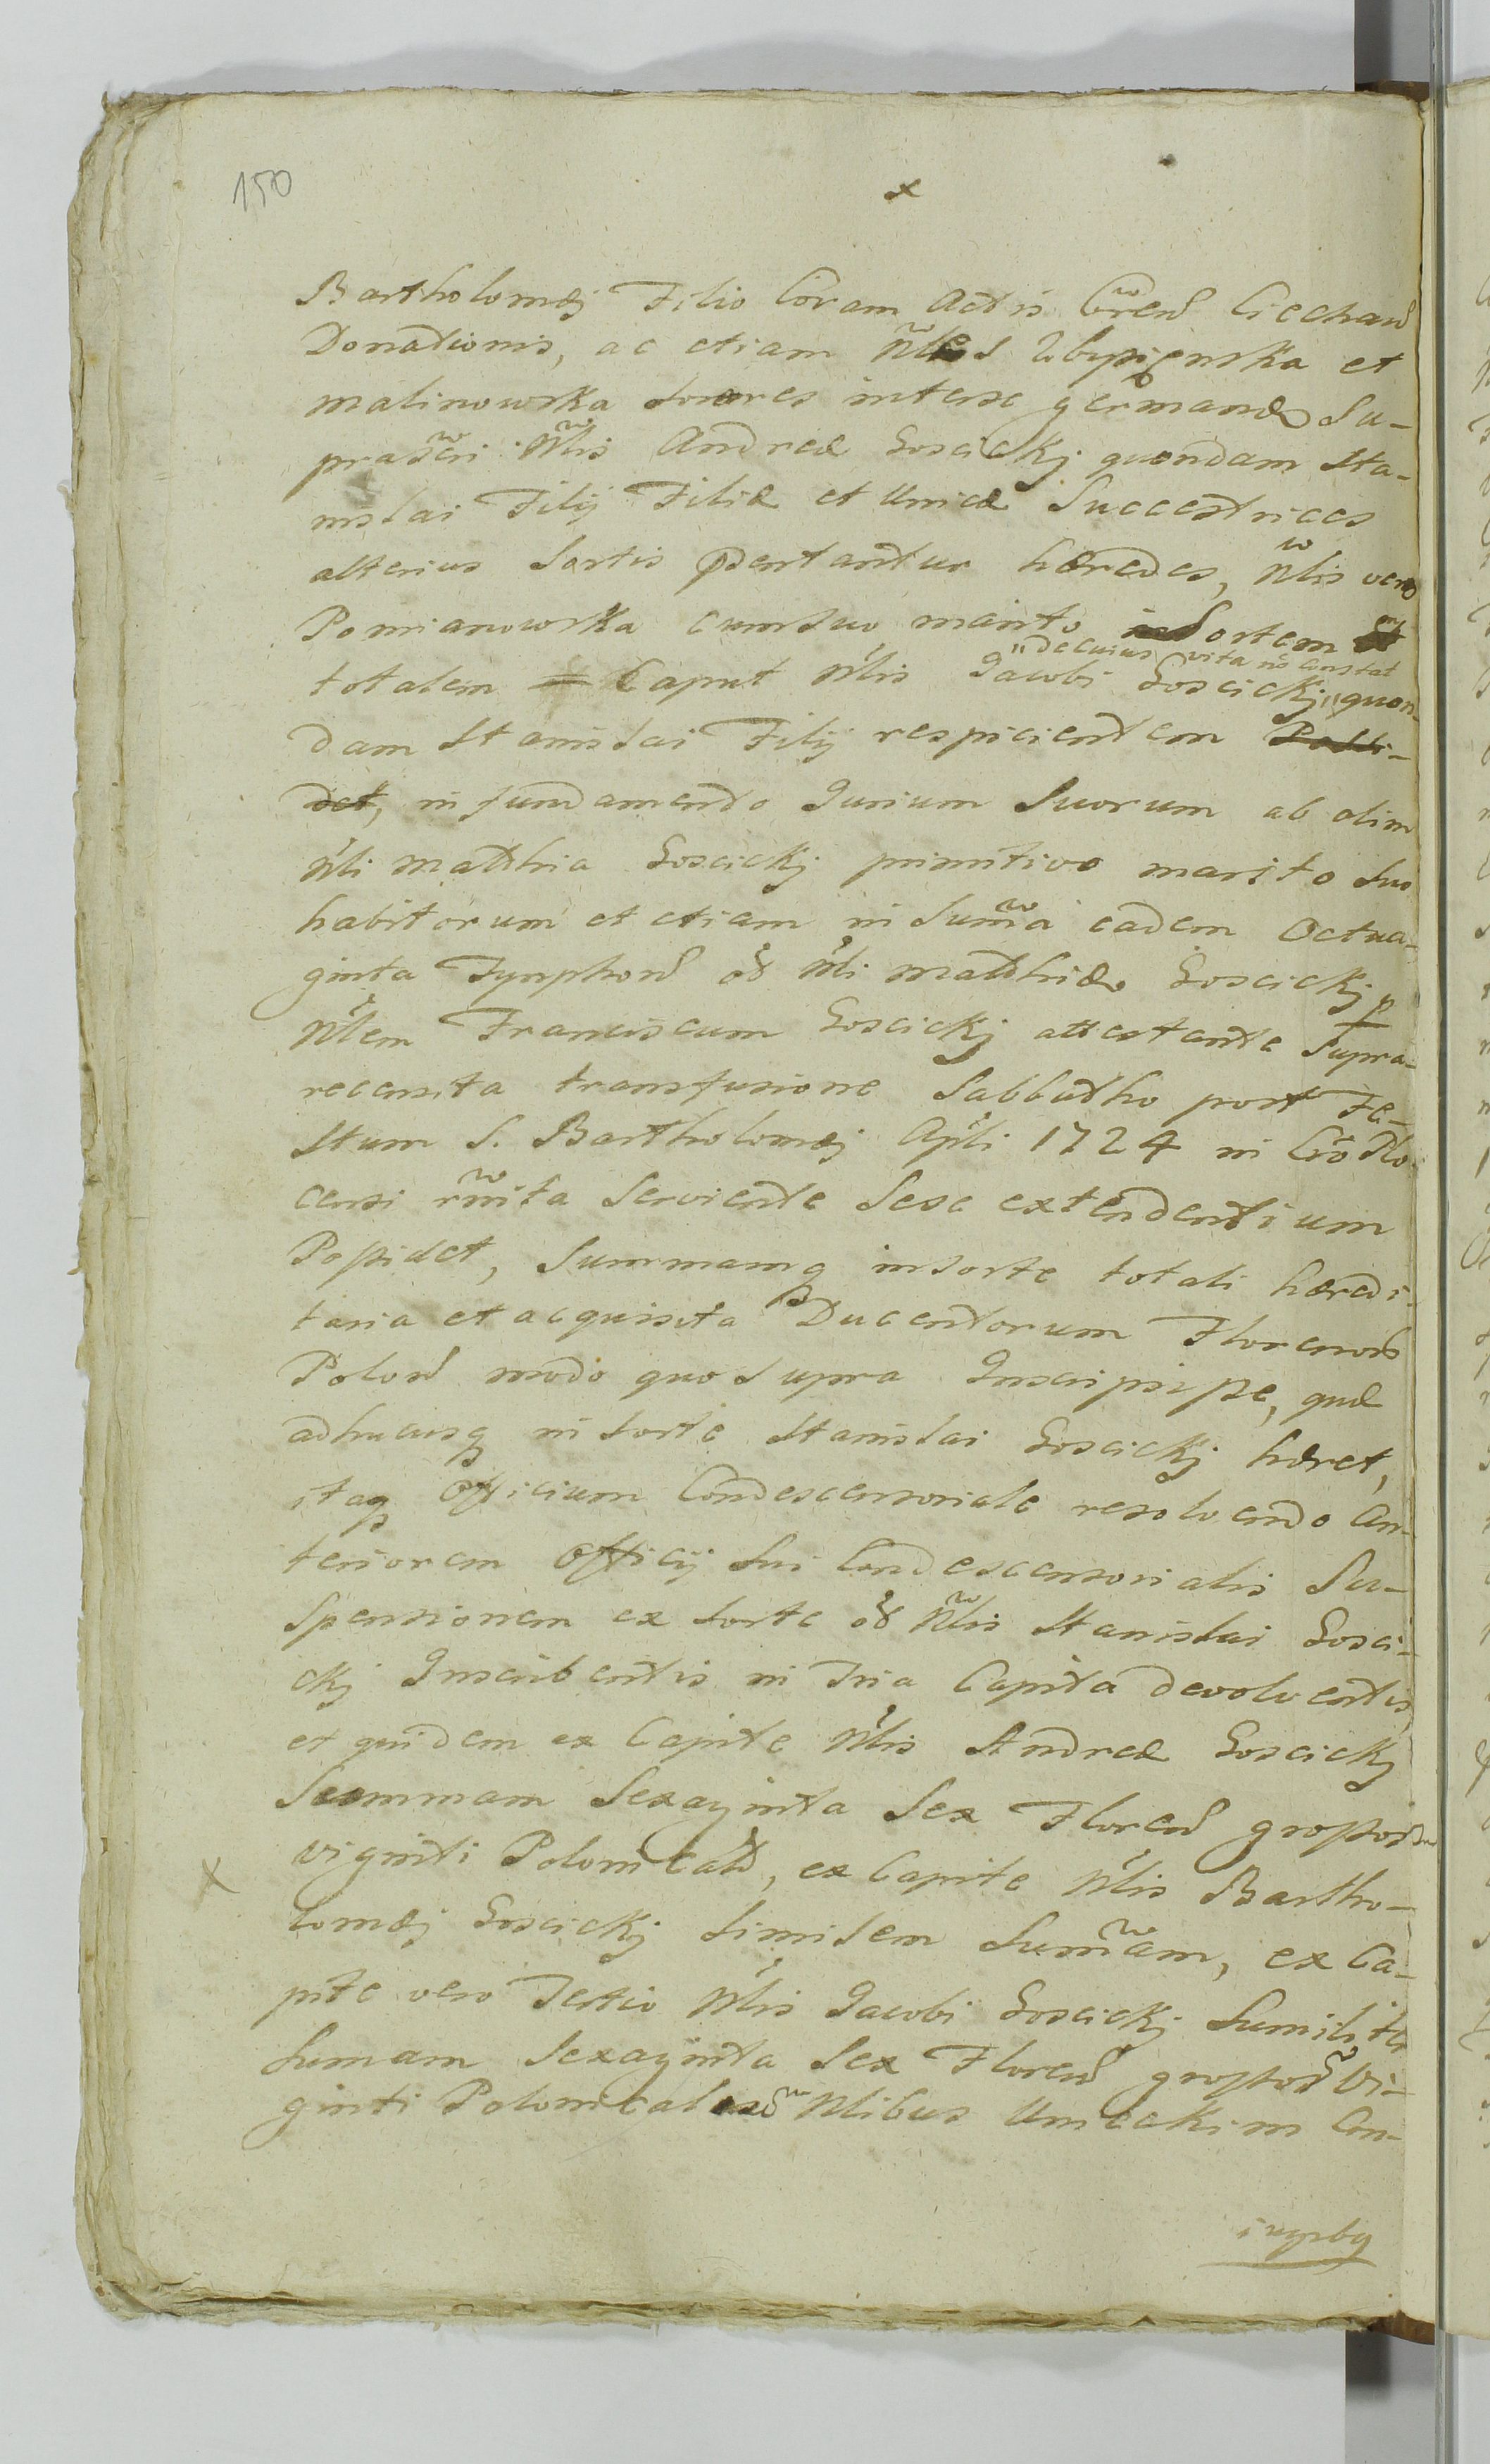 150
x
Bartholomæj Filio Coram Actis Cřen̄ Ciechan̄
Donationis, ac etiam Nles Ubysienska et
Malinowska Sorores inter se germanæ Su-
prascri Nlis Andreæ Goscickj quondam Sta-
nislai Filij Filiæ et Unicæ Successtrices
alterius Sortis pdentantur hæredes, Nlis vero
Pomianowska cum suo marito Sortem
"de cuius vita nō constat
totalem Caput Nlis Jacobi Goscickj " quon-
dam Stanislai Filij respicientem Possi-
det, in fundamento Jurium Suorum ab olim
Nli Matthia Goscickj primitivo marito Suo
habitorum et etiam in Suma eadem Octua-
ginta Tynphon̄ oł Nli Matthiæ Goscickj p
Nlem Franciscum Goscickj attestante Supra-
recensita transfusione Sabbatho post Fe-
stum S. Bartholomæj Apli 1724 in Cro Plo-
censi rňita Serviente Sese extendentium
Possidet, Summamq in sorte totali hæredi-
taria et acquisita Ducentorum Florenor
Polon̄ modo quo supra Inscripsisse, quæ
adhucusq in sorte Stanislai Goscickj hæret,
itaq Officium Condescensoriale resolvendo An-
teriorem Officij Sui Condescensorialis Su-
spensionem ex sorte oł Nlis Stanislai Gosci-
ckj Inscribentis in Tria Capita devolventis,
et quidem ex Capite Nlis Andreæ Goscickj
Summam Sexaginta Sex Floren̄ grossor
x viginti Polonical̄, ex Capite Nlis Bartho-
lomæj Goscickj Similem Sumam, ex Ca-
pite vero Tertio Nlis Jacobi Goscickj Similiter
Sumam Sexaginta Sex Floren̄ grossor Vi-
ginti Polonical Nlibus Umeckim Con-